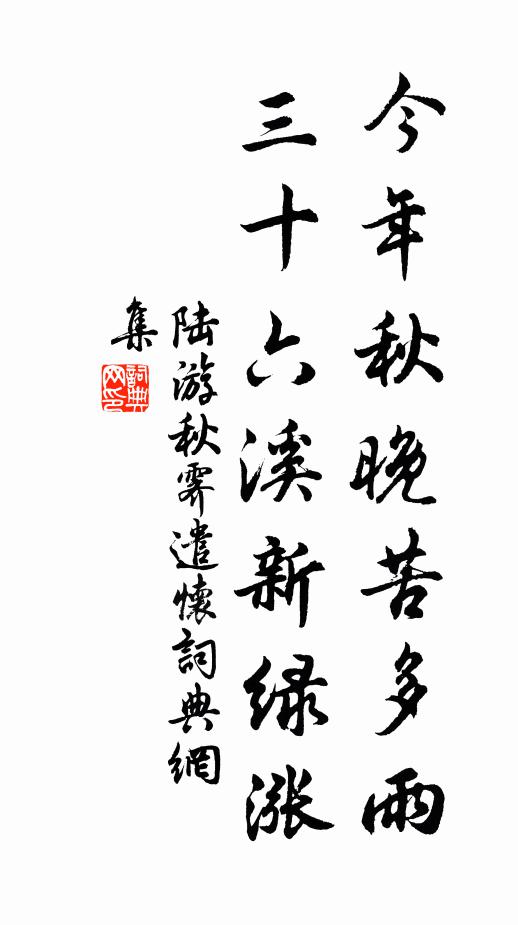 今年秋晚苦多雨
三十六溪新绿涨
陆游秋霁遣懷詞典網
集
詞典
网印